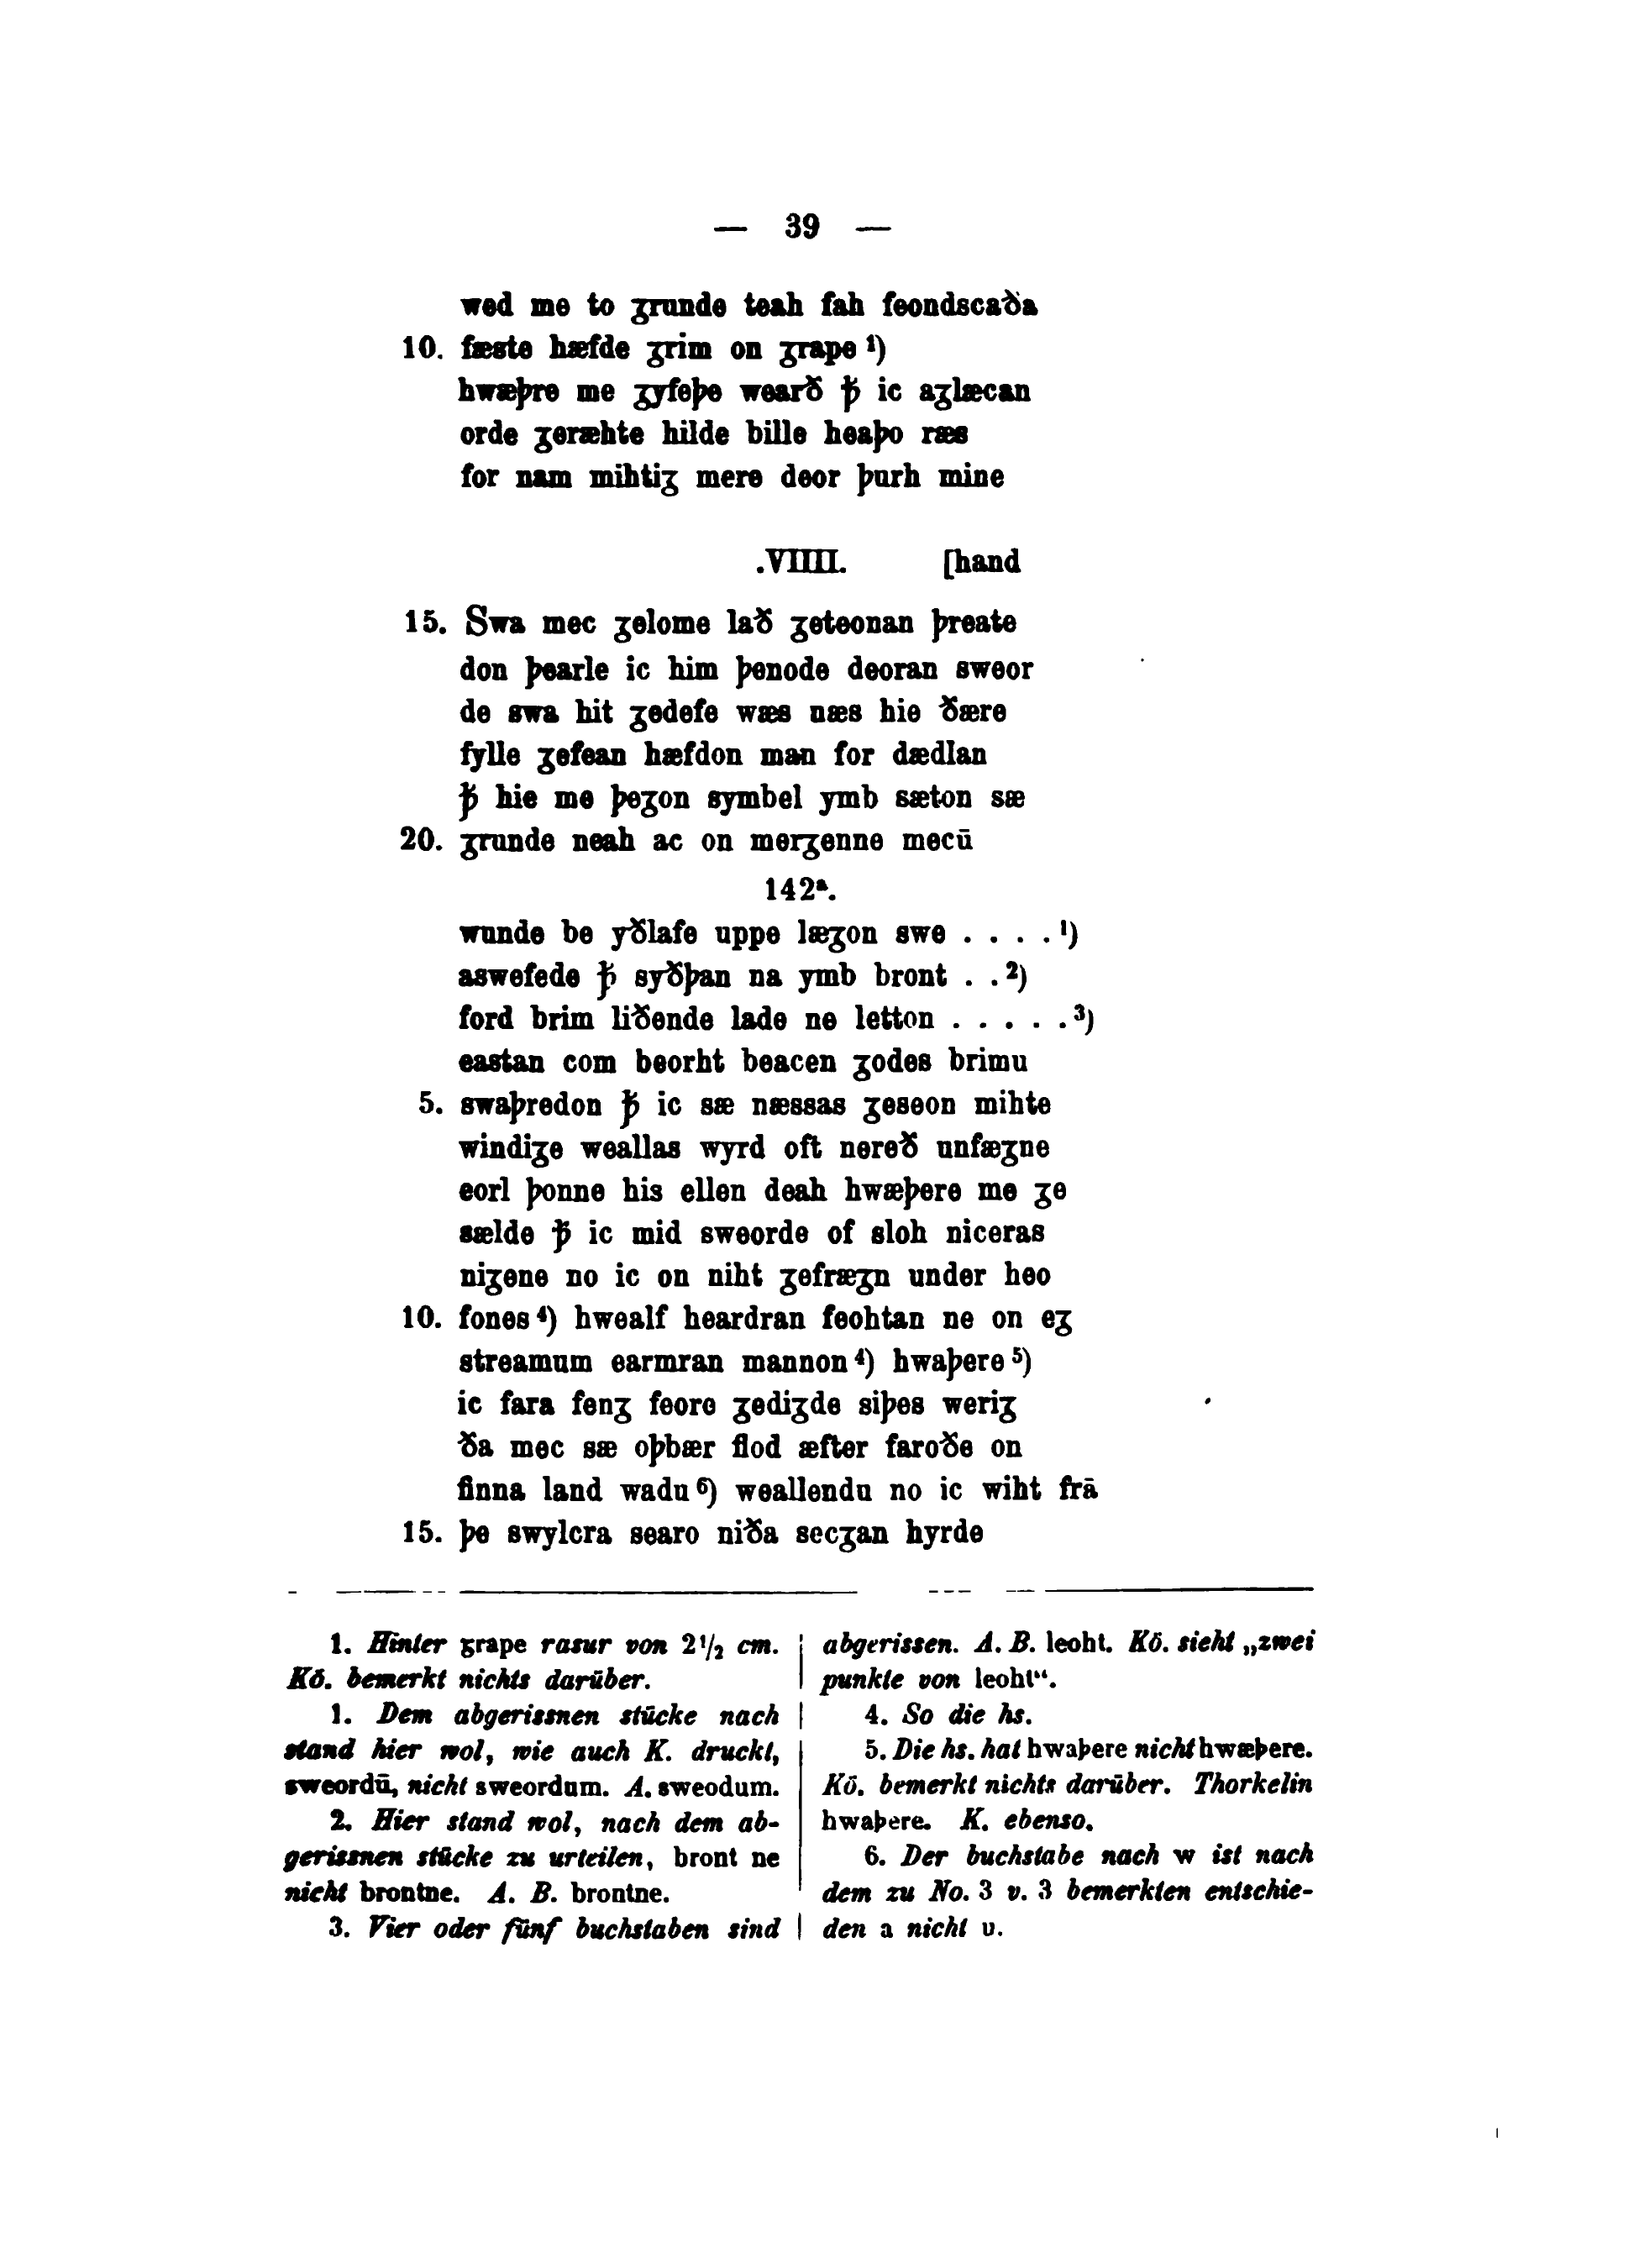 — 39 —
wed me to ʒrunde teah fah feondscaða
10. fæste hæfde ʒrim on ʒrape ¹)
hwæþre me ʒyfeþe wearð ꝥ ic aʒlæcan
orde ʒeræhte hilde bille heaþo ræs
for nam mihtiʒ mere deor þurh mine
.VIIII. [hand
15. Swa mec ʒelome lað ʒeteonan þreate
don þearle ic him þenode deoran sweor
de swa hit ʒedefe wæs næs hie ðære
fylle ʒefean hæfdon man for dædlan
ꝥ hie me þeʒon symbel ymb sæton sæ
20. ʒrunde neah ac on merʒenne mecū
142ᵃ.
wunde be yðlafe uppe læʒon swe . . . . ¹)
aswefede ꝥ syðþan na ymb bront . . ²)
ford brim liðende lade ne letton . . . . . ³)
eastan com beorht beacen ʒodes brimu
5. swaþredon ꝥ ic sæ næssas ʒeseon mihte
windiʒe weallas wyrd oft nereð unfæʒne
eorl þonne his ellen deah hwæþere me ʒe
sælde ꝥ ic mid sweorde of sloh niceras
niʒene no ic on niht ʒefræʒn under heo
10. fones ⁴) hwealf heardran feohtan ne on eʒ
streamum earmran mannon ⁴) hwaþere ⁵)
ic fara fenʒ feore ʒediʒde siþes weriʒ
ða mec sæ oþbær flod æfter faroðe on
finna land wadu ⁶) weallendu no ic wiht frā
15. þe swylcra searo niða secʒan hyrde
1. Hinter ʒrape rasur von 2 1/2 cm.
Kö. bemerkt nichts darüber.
1. Dem abgerissnen stücke nach
stand hier wol, wie auch K. druckt,
sweordū, nicht sweordum. A. sweodum.
2. Hier stand wol, nach dem ab-
gerissnen stücke zu urteilen, bront ne
nicht brontne. A. B. brontne.
3. Vier oder fünf buchstaben sind
abgerissen. A. B. leoht. Kö. sieht „zwei
punkte von leoht“.
4. So die hs.
5. Die hs. hat hwaþere nicht hwæþere.
Kö. bemerkt nichts darüber. Thorkelin
hwaþere. K. ebenso.
6. Der buchstabe nach w ist nach
dem zu No. 3 v. 3 bemerkten entschie-
den a nicht u.